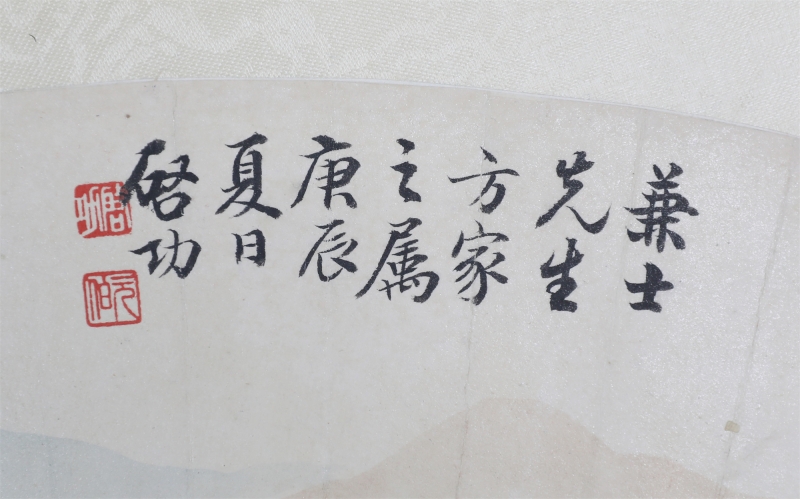 兼士
先生
方家
之属
庚辰
夏日
啓功